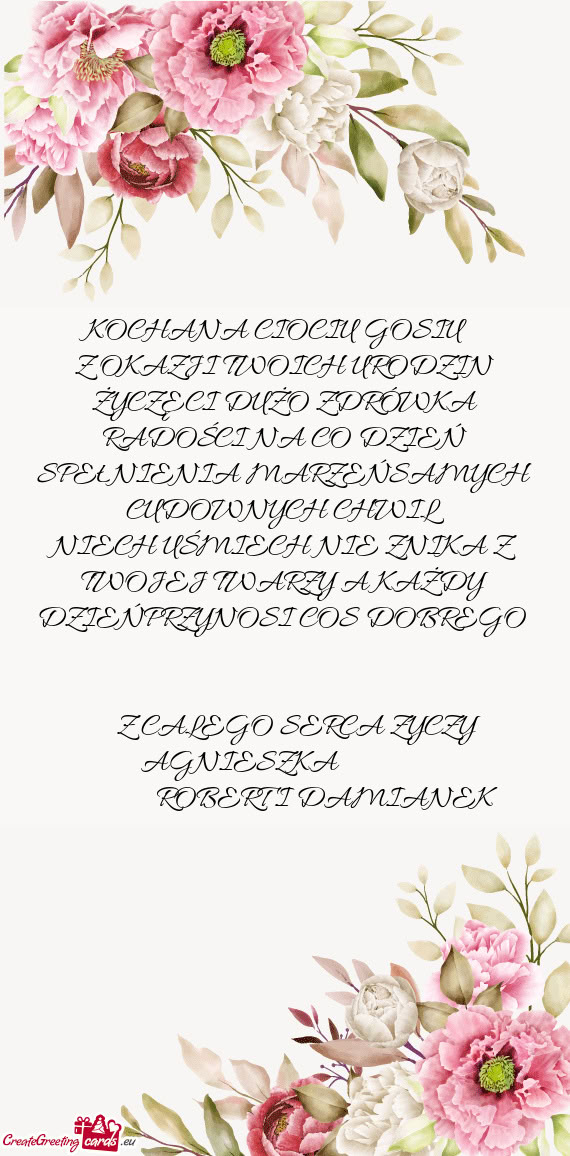 KOCHANA CIOCIU GOSIU
Z OKAZJI TWOICH URODZIN
ŻYCZĘ CI DUŻO ZDRÓWKA
RADOŚCI NA CO DZIEŃ
SPEŁNIENIA MARZEŃ SAMYCH
CUDOWNYCH CHWIL
NIECH UŚMIECH NIE ZNIKA Z
TWOJEJ TWARZY A KAŻDY
DZIEŃ PRZYNOSI COS DOBREGO
Z CALEGO SERCA ZYCZY
AGNIESZKA
ROBERT I DAMIANEK
CreateGreeting cards .eu